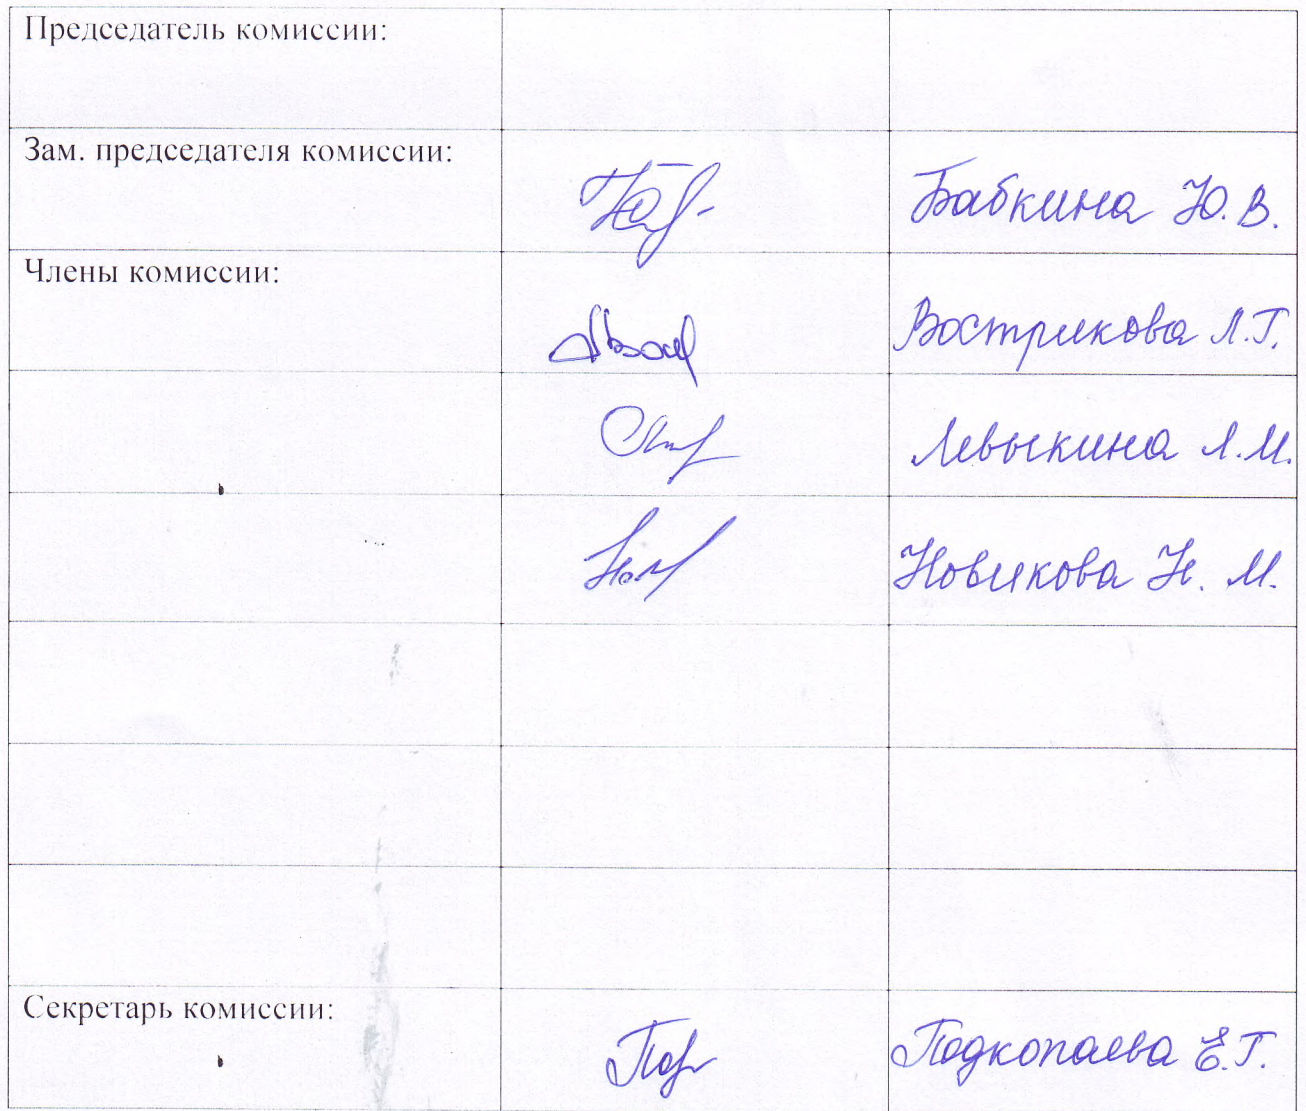 Председатель комиссии:
Зам. председателя комиссии:
Бабкина Ю. В.
Члены комиссии:
Вострикова Л.Г.
Левыкина Л.М.
Новикова Н. М.
Секретарь комиссии:
Подкопаева Е.Г.